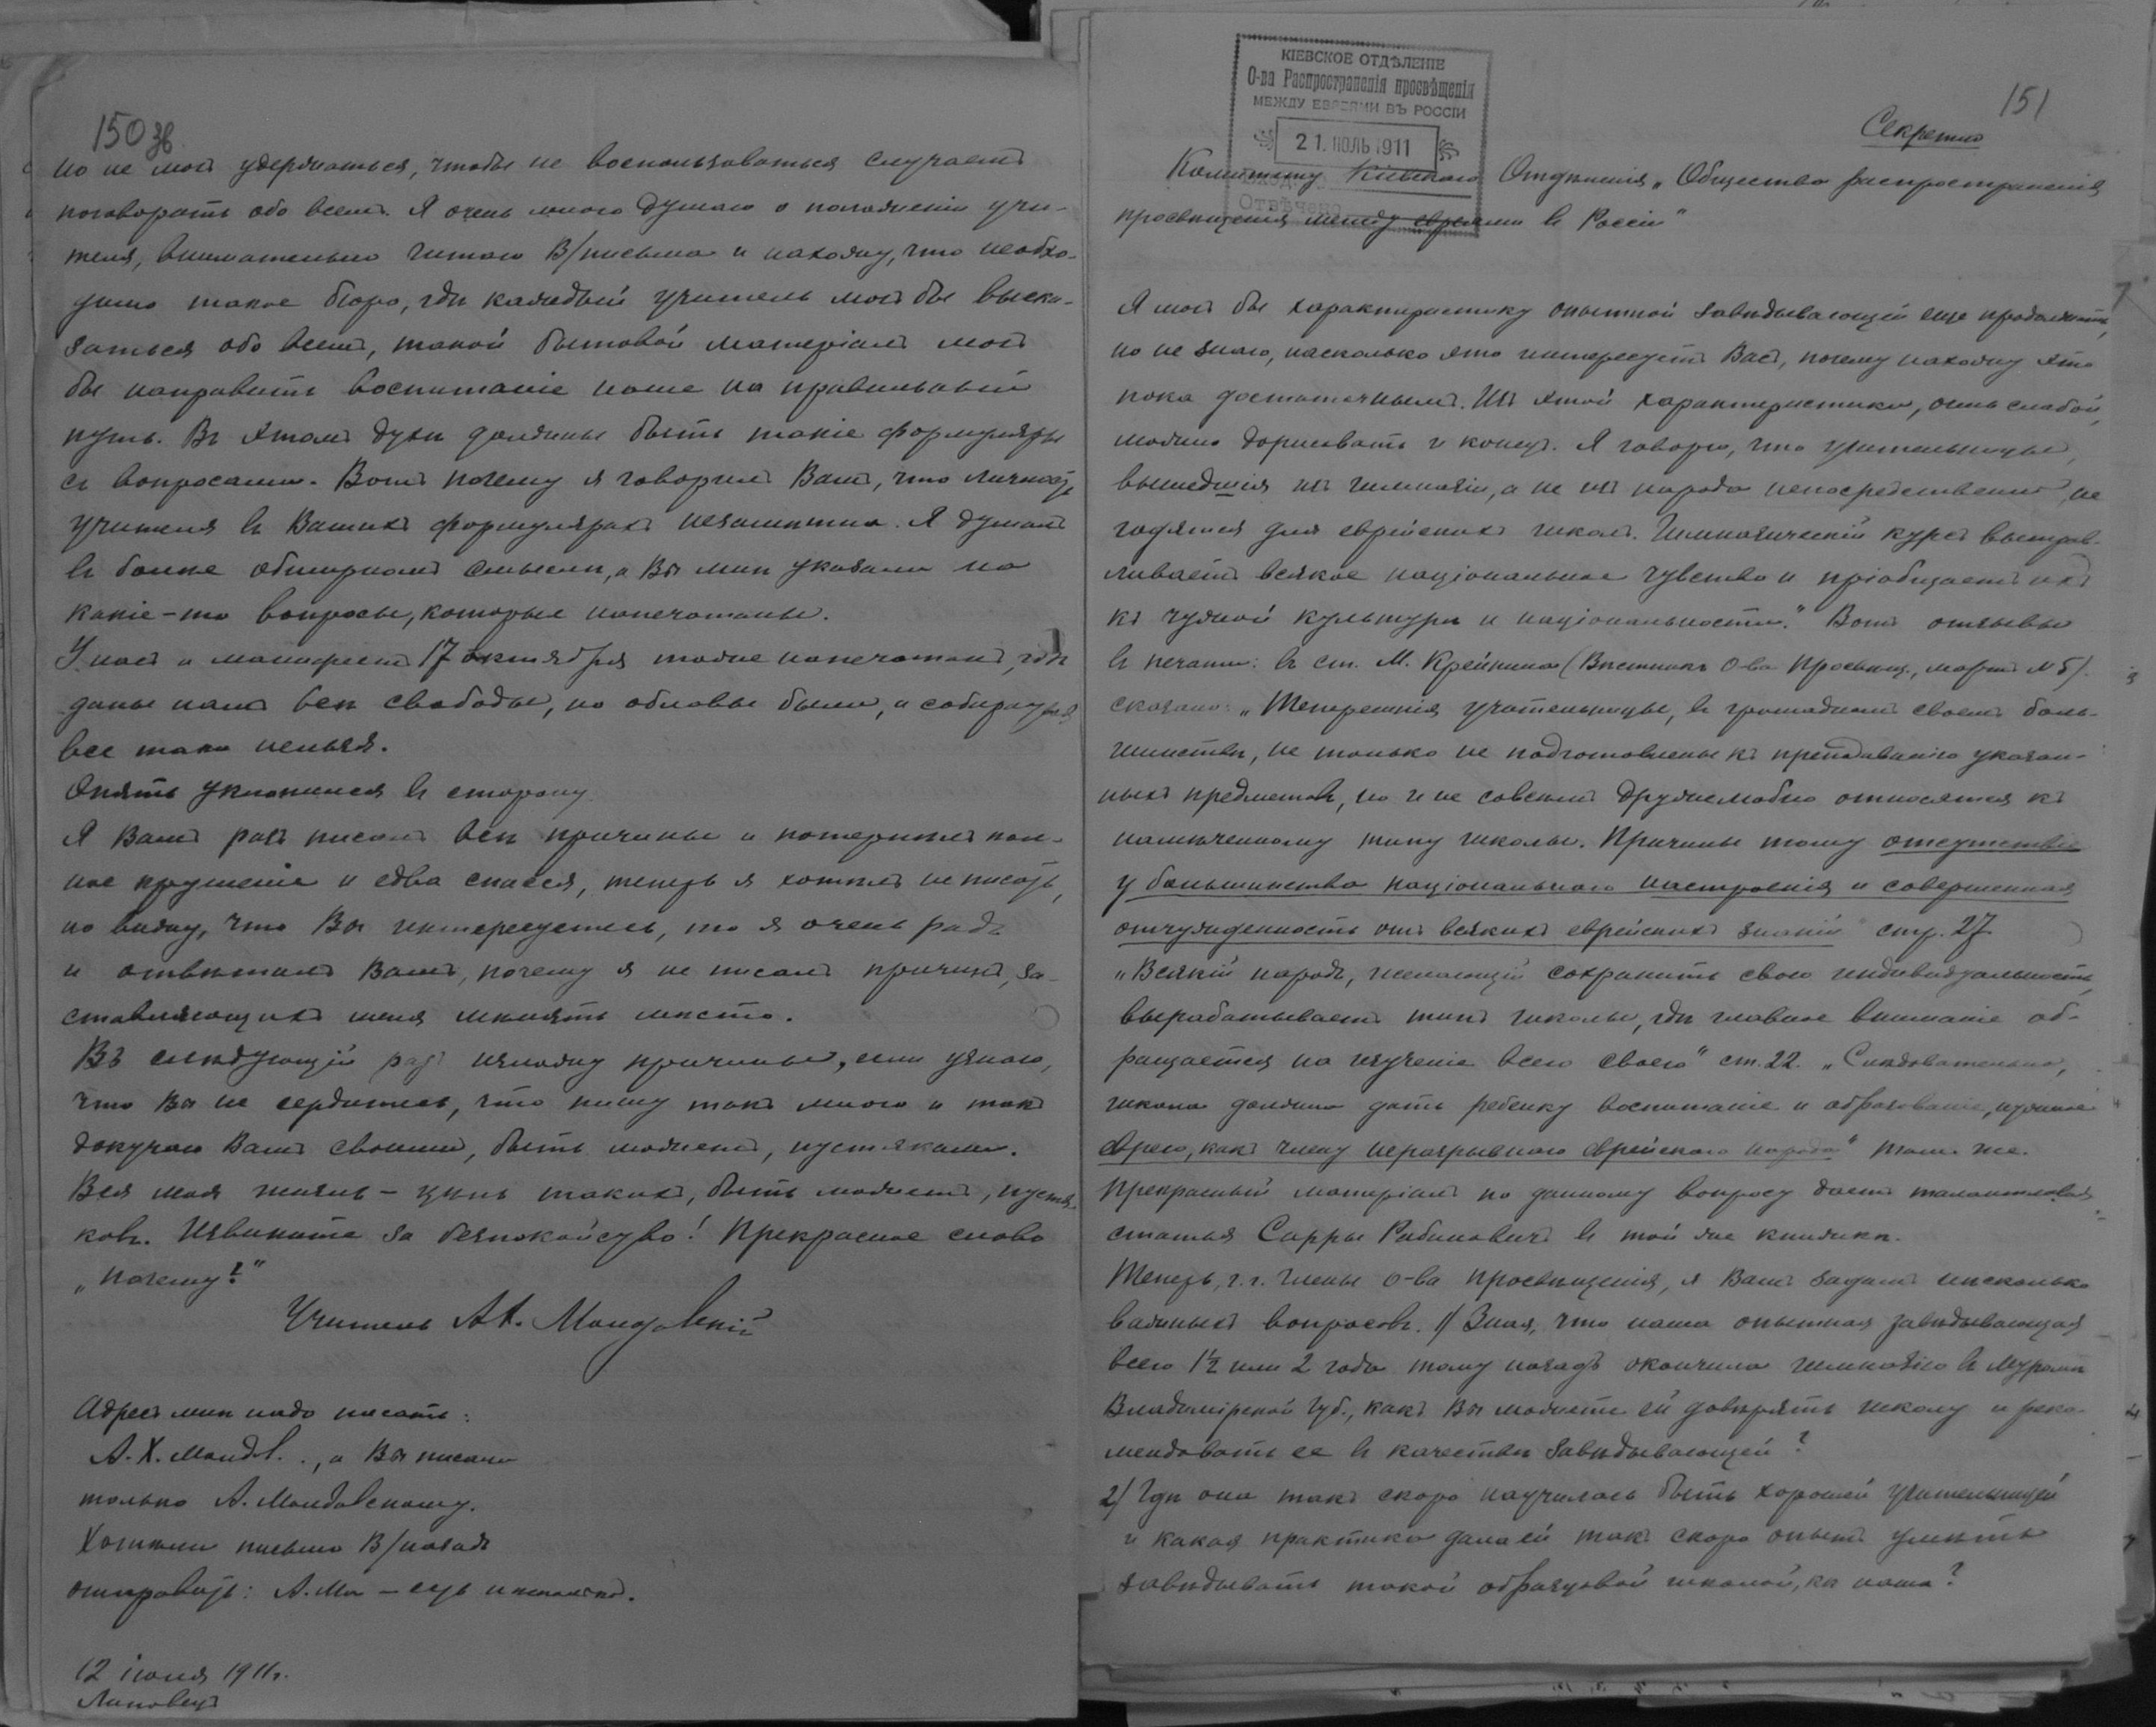 150 зв.
но не могъ удержаться, чтобы не воспользоваться случаемъ
поговорить обо всемъ. Я очень много думаю о положеніи учи-
теля, внимательно читаю В/письма и нахожу, что необхо-
димо такое бюро, гдѣ каждый учитель могъ бы выска-
заться обо всемъ, такой бытовой матеріалъ могъ
бы направить воспитаніе наше на правильный
путь. Въ этомъ духѣ должны быть такіе формуляры
съ вопросами. Вотъ почему я говорилъ Вамъ, что личность
учителя въ Вашихъ формулярахъ незамѣтна. Я думалъ
въ болѣе обширномъ смыслѣ, а Вы мнѣ указали на
какіе-то вопросы, которые напечатаны.
У насъ и манифестъ 17 октября тоже напечатанъ, гдѣ
даны намъ всѣ свободы, но обловы были, а собираться
все таки нельзя.
Опять уклонился въ сторону.
Я Вамъ разъ писалъ всѣ причины и потерпѣлъ пол-
ное крушеніе и едва спасся, теперь я хотѣлъ не писать,
но вижу, что Вы интересуетесь, то я очень радъ
и отвѣтилъ Вамъ, почему я не писалъ причинъ, за-
ставляющихъ меня мѣнять мѣсто.
Въ слѣдующій разъ изложу причины, если узнаю,
что Вы не сердитесь, что пишу такъ много и такъ
докучаю Вамъ своими, быть можетъ, пустяками.
Вся моя жизнь – цѣпь такихъ, быть можетъ, пустя-
ковъ. Извините за безпокойсуво! Прекрасное слово
„почему?"
Учитель
Адресъ мнѣ надо писать:
А. Х. Мандв.., а Вы писали
только А. Мандавскому.
Хотѣли письмо В/назадъ
отправить: А. Ма –
12 іюля 1911 г.
Липовецъ
151
Секретно
КІЕВСКОЕ ОТДѢЛЕНІЕ
О-ва Распространенія просвѣщенія
МЕЖДУ ЕВРЕЯМИ ВЪ РОССІИ
21. ІЮЛЬ 1911
Отвѣчено
Комитету Кіевскаго Отдѣленія „Общества распространенія
просвѣщенія между евреями въ Россіи"
Я могъ бы характеристику опытной завѣдывающей еще продолжить,
но не знаю, насколько это интересуетъ Васъ, почему нахожу это
пока достаточнымъ. Изъ этой характеристики, очень слабой,
можно дорисовать и конецъ. Я говорю, что учительницы,
вышедшія изъ гимназіи, а не изъ народа непосредственно, не
годятся для еврейскихъ школъ. Гимназическій курсъ вытрав-
ливаетъ всякое національное чувство и пріобщаетъ ихъ
къ чужой культурѣ и національности." Вотъ отзывы
въ печати: въ ст. М. Крейнина (Вѣстникъ О-ва Просвѣщ., мартъ №5).
сказано: „Теперешнія учительницы, въ громадномъ своемъ боль-
шинствѣ, не только не подготовлены къ преподаванію указан-
ныхъ предметовъ, но и не совсѣмъ дружелюбно относятся къ
намѣченному типу школы. Причины тому отсутствіе
у большинства національнаго настроенія и совершенная
отчужденность отъ всякихъ еврейскихъ знаній" стр. 27
„Всякій народъ, желающій сохранить свою индивидуальность,
вырабатываетъ типъ школы, гдѣ главное вниманіе об-
ращается на изученіе всего своего" ст. 22. „Слѣдовательно,
школа должна дать ребенку воспитаніе и образованіе, нужное
еврею, какъ члену неразрывнаго еврейскаго народа" там. же.
Прекрасный матеріалъ по данному вопросу даетъ талантливая
статья Сарры Рабиновичъ въ той же книжкѣ.
Теперь, г.г. члены О-ва просвѣщенія, я Вамъ задамъ нѣсколько
важныхъ вопросовъ. 1/ Зная, что наша опытная завѣдывающая
всего 1½ или 2 года тому назадъ окончила гимназію въ Муромѣ
Владимірской губ., какъ Вы можете ей довѣрять школу и реко-
мендовать ее въ качествѣ завѣдывающей?
2/ Гдѣ она такъ скоро научилась быть хорошей учительницей
и какая практика дала ей такъ скоро опытъ умѣть
завѣдывать такой образцовой школой, ка наша?